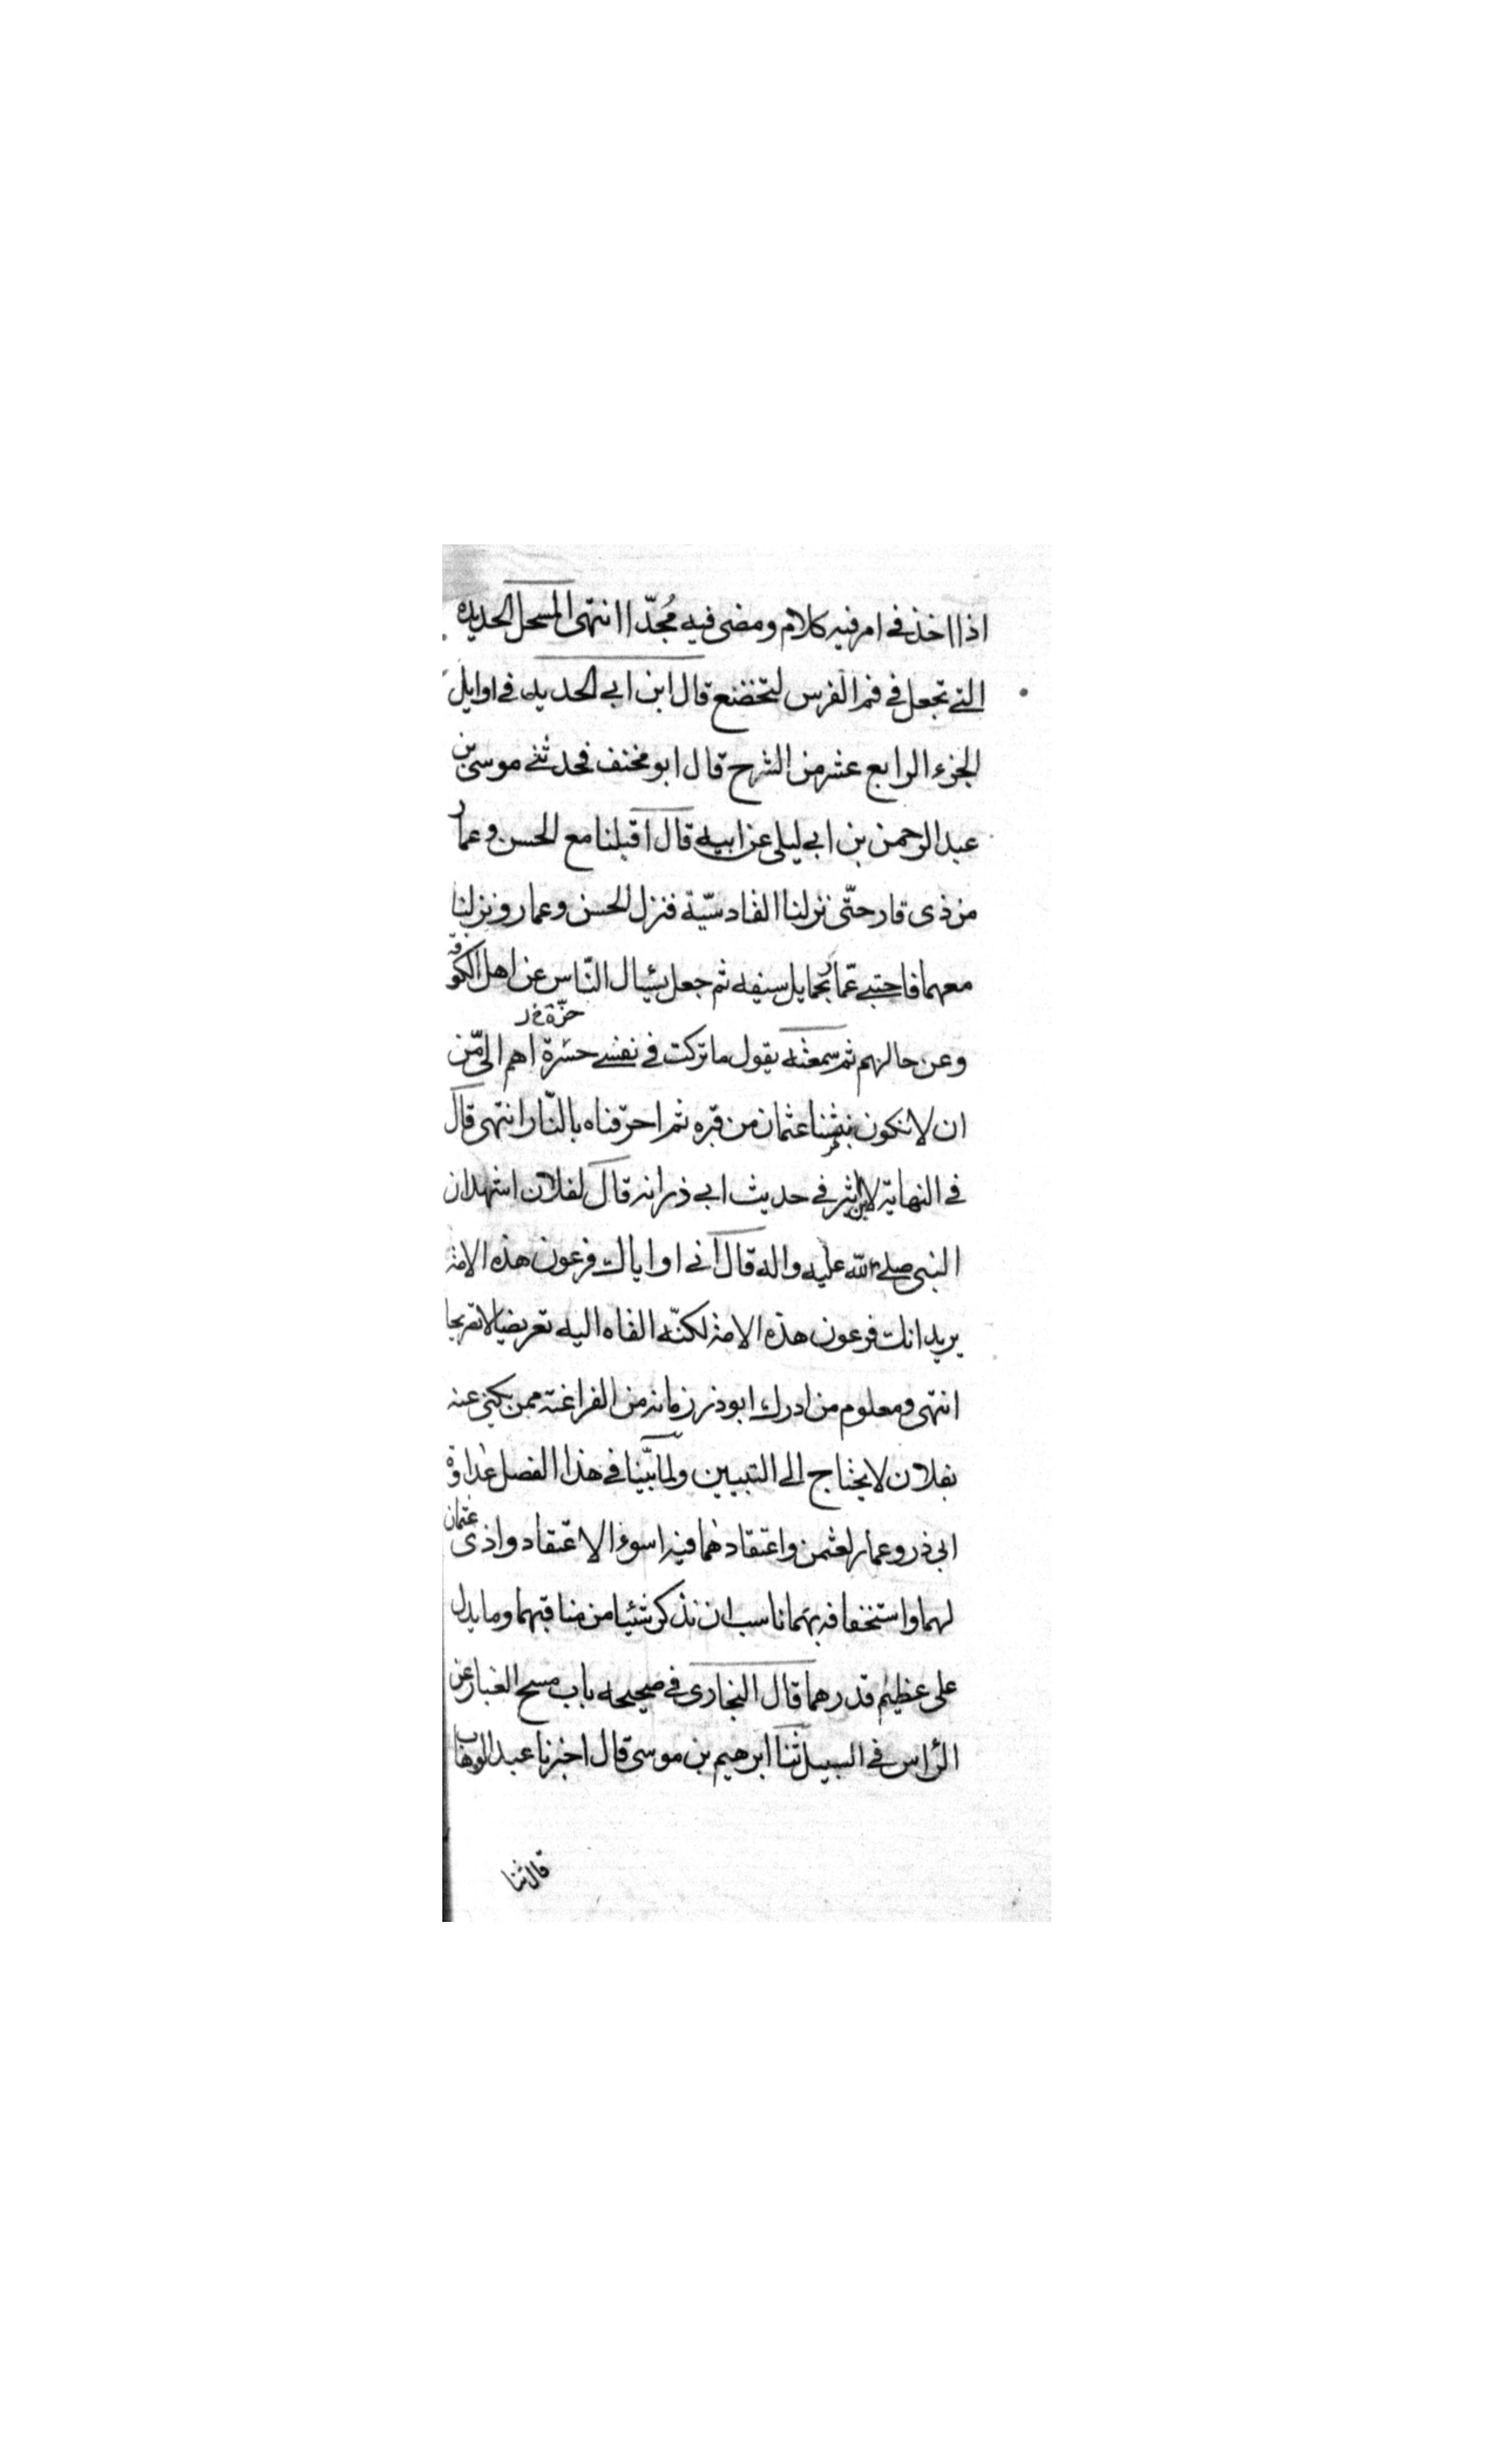 اذا اخذ فى امر فيه كلام ومضى فيه مُجدّا انتهى المسحل الحديده
التى تجعل فى فم الفرس لتخضع قال ابن ابى الحديد فى اوايل
الجزء الرابع عشر من الشرح قال ابو مخنف فحدثنى موسى بن
عبد الرحمن بن ابى ليلى عن ابيه قال اقبلنا مع الحسن وعمار
من ذى قار حتّى نزلنا القادسيّة فنزل الحسن وعمار ونزلنا
معهما فاحتبى عمّار بحمايل سيفه ثم جعل يسئال النّاس عن اهل الكوفة
حزّة خ د
وعن حالهم ثم سمعته يقول ما تركت فى نفسى حسرة اهم الىّ من
ان لا نكون نبشنا عثمان من قبره ثم احرقناه بالنّار انتهى قال
فى النهاية لابن اثير فى حديث ابى ذر انه قال لفلان اشهد ان
النبى صلى الله عليه واله قال انى او اياك فرعون هذه الامة
يريد انك فرعون هذه الامة لكنّه القاه اليه تعريضا لا تصريحا
انتهى ومعلوم من ادرك ابوذر زمانه من الفراعنة ممن يكنى عنه
بفلان لا يحتاج الى التبيين ولما بيّنا فى هذا الفصل عداوة
ابى ذر وعمار لعثمن واعتقادهما فيه اسوء الاعتقاد واذى عثمان
لهما واستخفافه بهما ناسب ان نذكر شئيا من مناقبهما وما يدل
على عظيم قدرهما قال البخارى فى صحيحه باب مسح الغبار عن
الرّاس فى السبيل ثنا ابرهيم بن موسى قال اخبرنا عبد الوهاب
قال ثنا